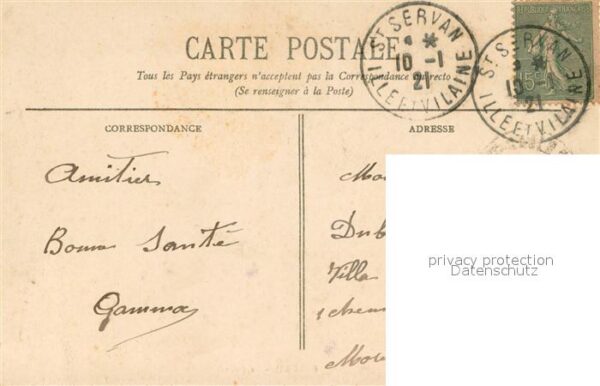 CARTE POSTALE
Tous les Pays étrangers n'acceptent pas la Correspondance au recto
(Se renseigner à la Poste)
ST SERVAN
10 -1
21
ILLE ET VILAINE
REPUBLIQUE FRANÇAISE
15c
ST SERVAN
10 -1
21
ILLE ET VILAINE
CORRESPONDANCE
Amitier
Bonne Santé
Gamma
ADRESSE
Dub
Villa
chem
privacy protection
Datenschutz